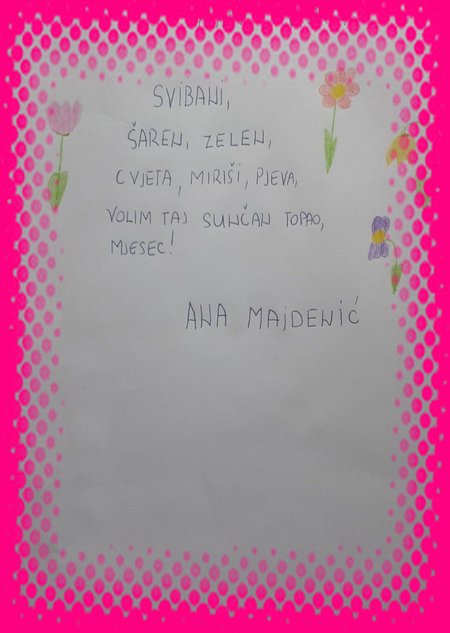 SVIBANJ,
ŠAREN, ZELEN,
CVJETA, MIRIŠI, PJEVA,
VOLIM TAJ SUNČAN TOPAO,
MJESEC!
ANA MAJDENIĆ